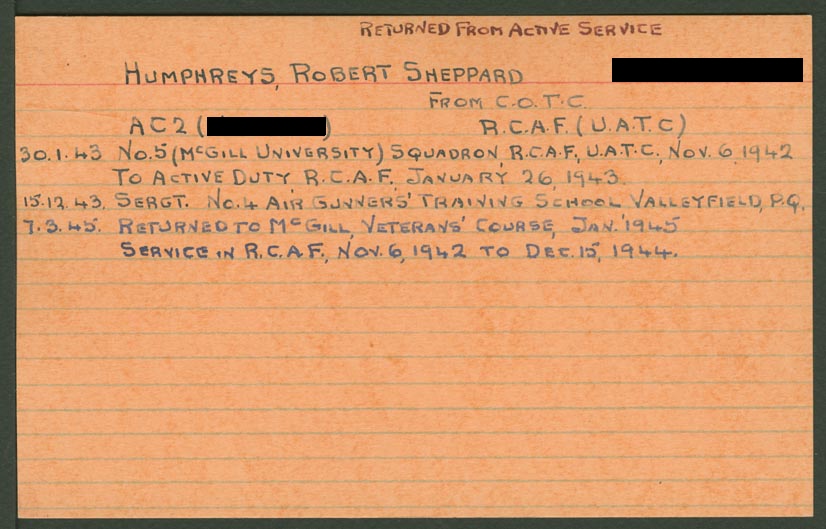 RETURNED FROM ACTIVE SERVICE
HUMPHREYS, ROBERT SHEPPARD
FROM C.O.T.C.
AC2 ( ) R.C.A.F. (U.A.T.C)
30.1.43 NO.5 (MCGILL UNIVERSITY) SQUADRON, R.C.A.F., U.A.T.C., NOV. 6, 1942
TO ACTIVE DUTY R.C.A.F. JANUARY 26, 1943.
15.12.43. SERGT. NO.4 AIR GUNNERS' TRAINING SCHOOL VALLEYFIELD, P.Q.
7.3.45. RETURNED TO MCGILL, VETERANS' COURSE, JAN. 1945
SERVICE IN R.C.A.F., NOV. 6, 1942 TO DEC. 15, 1944.